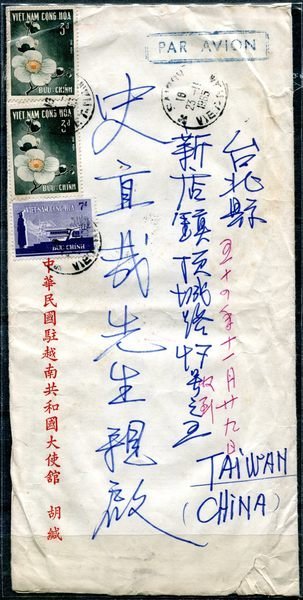 VIỆT NAM CỘNG HÒA
3đ
BƯU-CHÍNH
VIỆT NAM CỘNG HÒA
3đ
BƯU-CHÍNH
VIỆT NAM CỘNG HÒA
7đ
BƯU CHÍNH
PAR AVION
18
23-11
1965
VIỆT
台北縣
新店鎮頂城路47號之五
史宜哉先生親啟
五十四年十一月廿九日
收到
TAIWAN
(CHINA)
中華民國駐越南共和國大使館 胡緘